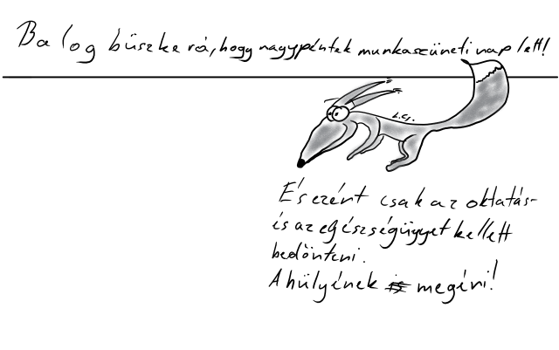 Balog büszke rá, hogy nagypéntek munkaszüneti nap lett!
L.G.
És ezért csak az oktatás-
és az egészségügyet kellett
bedönteni.
A hülyének is megéri!